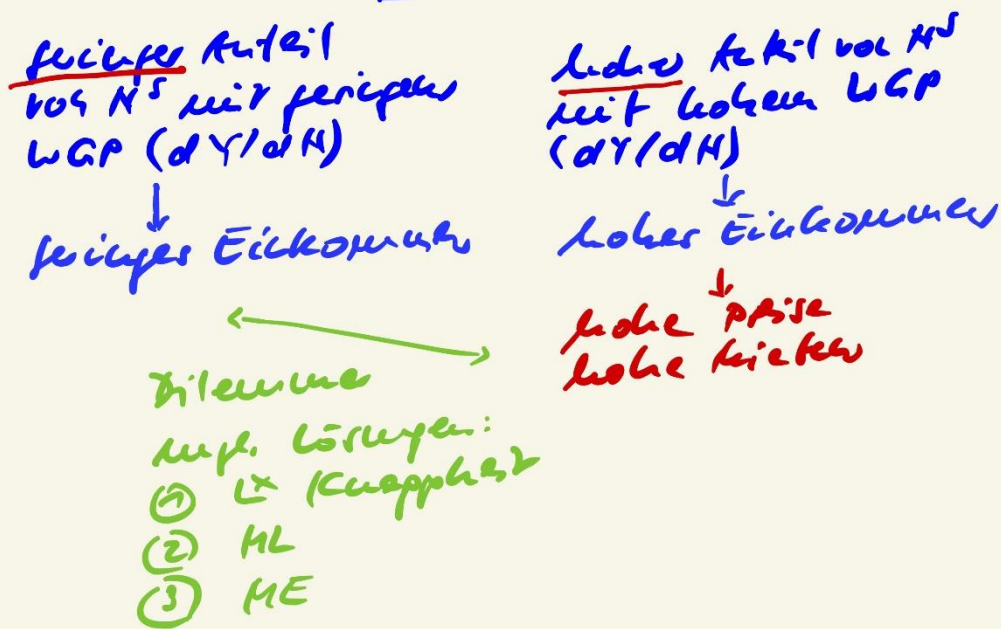 geringer Anteil
von Nˢ mit geringem
WGP (dY/dN)
↓
geringes Einkommen
hoher Anteil von Nˢ
mit hohem WGP
(dY/dN)
↓
hohes Einkommen
↓
hohe Preise
hohe Mieten
Dilemma
mgl. Lösungen:
① L* (Knappheit
② ML
③ ME